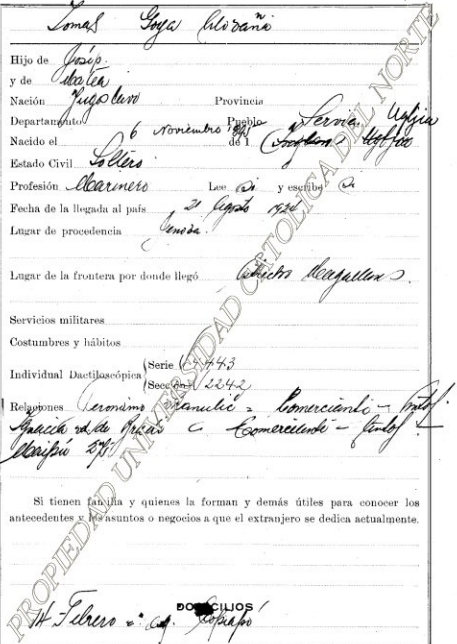 Tomas Goya
Hijo de Josip.
y de Matea
Nación Jugoslavo Provincia
Departamento Pueblo Servia Ugljia
Nacido el 6 Noviembre de 1
Estado Civil Soltero
Profesión Marinero Lee Si y escribe Si
Fecha de la llegada al país 21 Agosto 192
Lugar de procedencia Genova.
Lugar de la frontera por donde llegó Estrecho Magallanes.
Servicios militares
Costumbres y hábitos
Individual Dactiloscópica Serie 4443
Sección 2242
Relaciones Jeronimo = Comerciante -
de Comerciante -
Maipú
Si tienen familia y quienes la forman y demás útiles para conocer los
antecedentes y los asuntos o negocios a que el extranjero se dedica actualmente.
DOMICILIOS
14 Febrero Copiapó
PROPIEDAD UNIVERSIDAD CATOLICA DEL NORTE